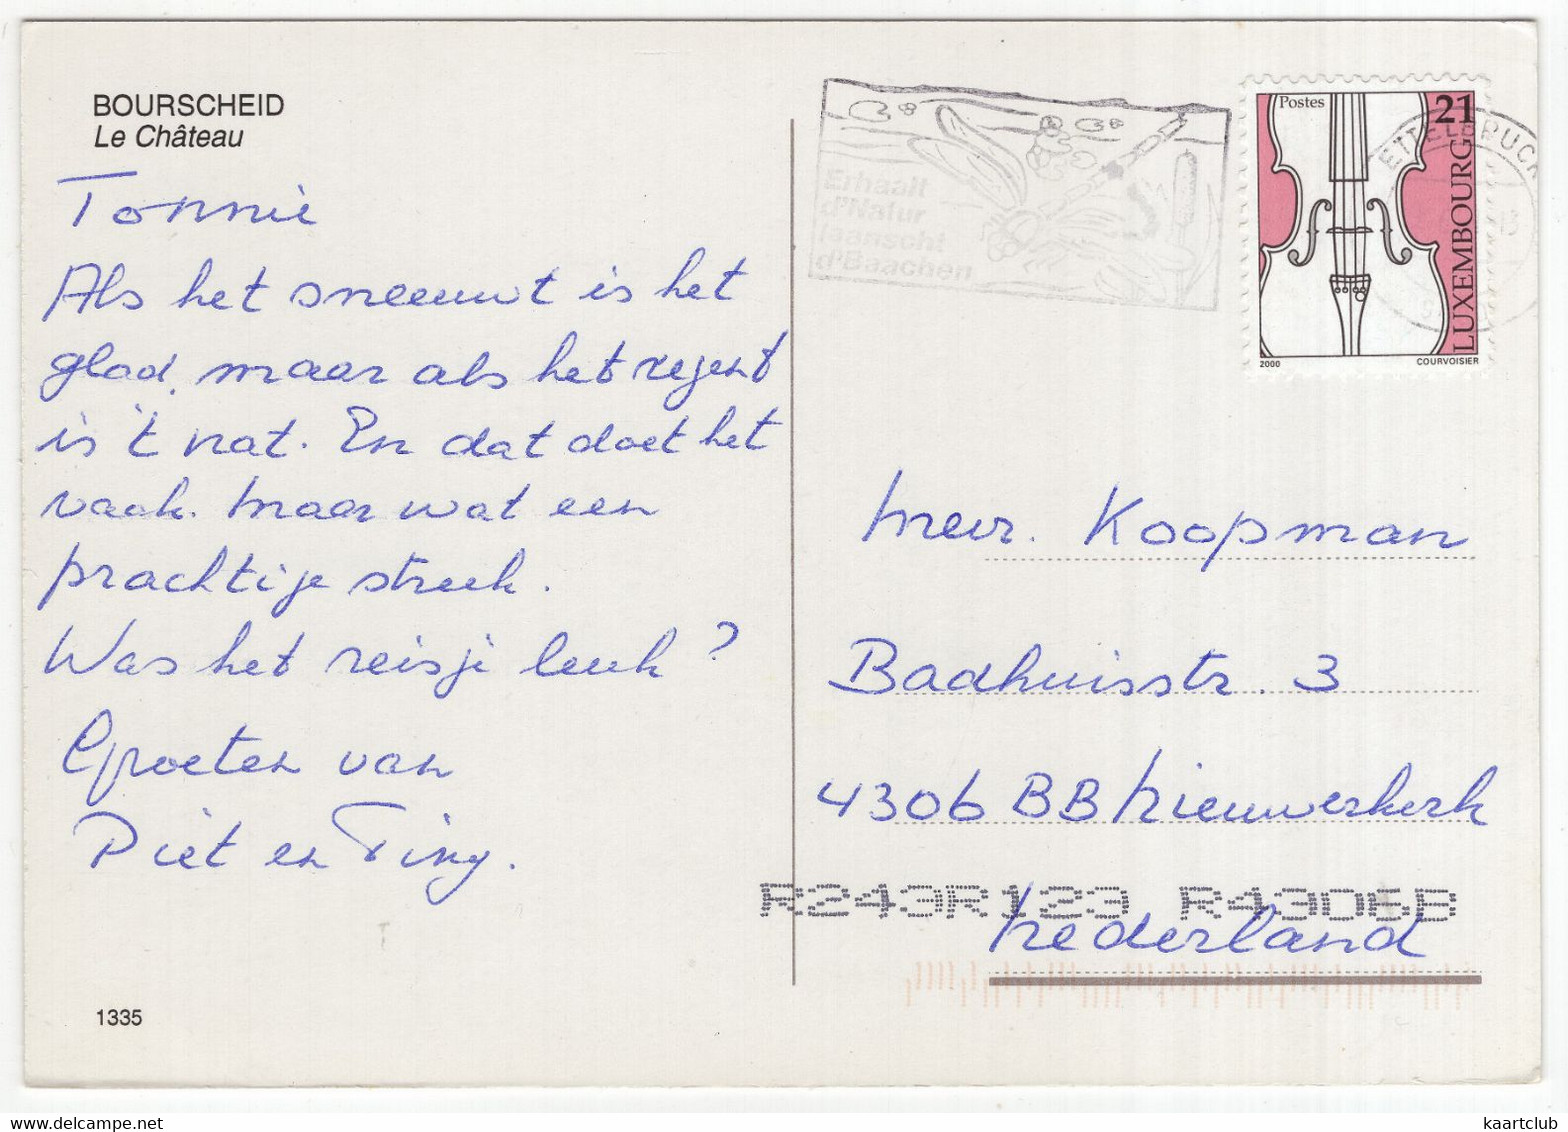 BOURSCHEID
Le Château
Tonnie
Als het sneeuwt is het
glad, maar als het regent
is 't nat. En dat doet het
vaak. Maar wat een
prachtige streek.
Was het reisje leuk?
Groeten van
Piet en Tiny.
1335
Erhaalt
d'Natur
laanscht
d'Baachen
Postes
21
LUXEMBOURG
2000
COURVOISIER
ETTELBRUCK
Mevr. Koopman
Badhuisstr. 3
4306 BB Nieuwerkerk
R243R123 R4306B
Nederland
www.delcampe.net
kaartclub